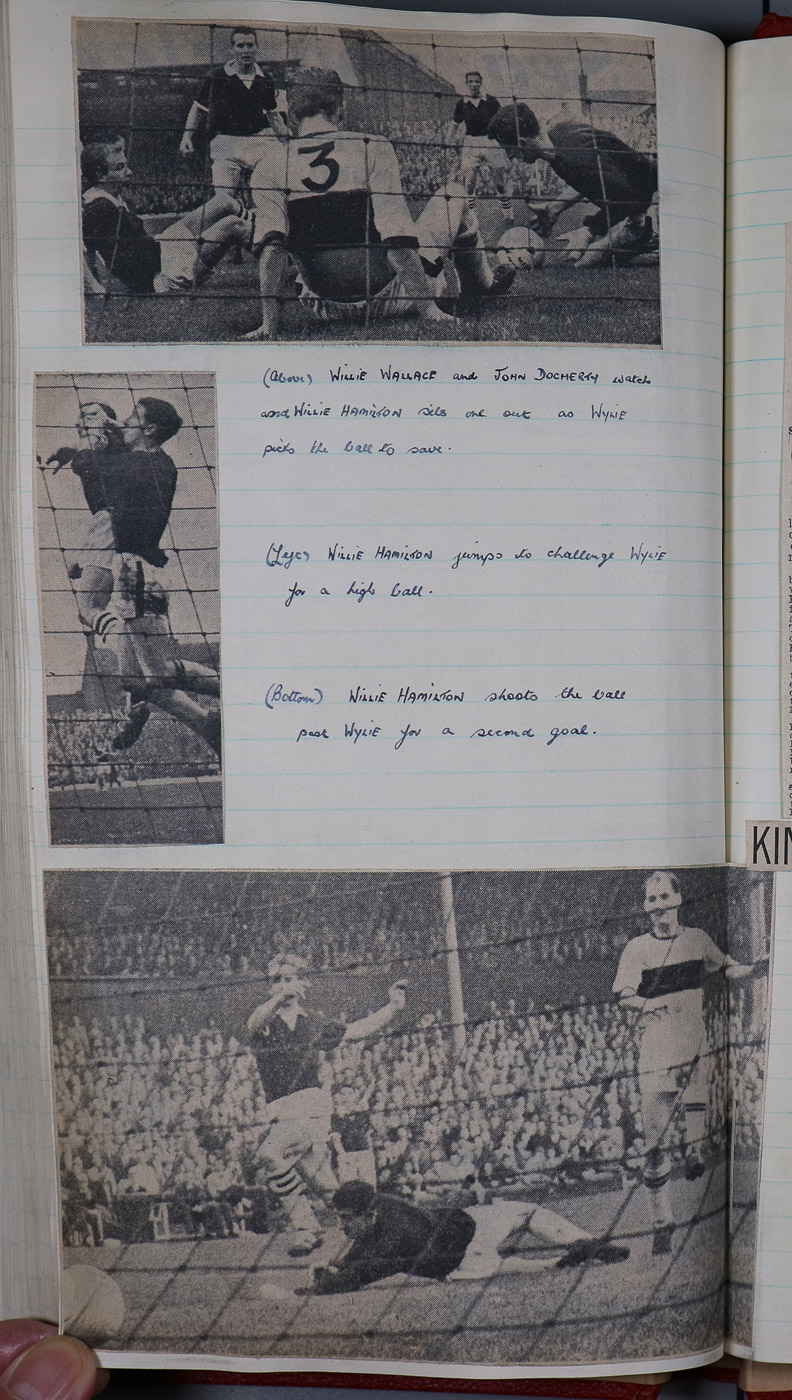 3
(Above) WILLIE WALLACE and JOHN DOCHERTY watch
and WILLIE HAMILTON sits one out as WYLIE
picks the ball to save.
(Left) WILLIE HAMILTON jumps to challenge WYLIE
for a high ball.
(Bottom) WILLIE HAMILTON shoots the ball
past WYLIE for a second goal.
KIN